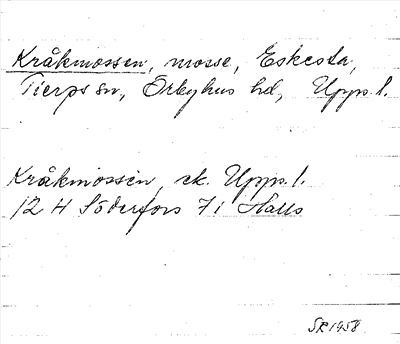 Kråkmossen, mosse, Eskesta,
Tierps sn, Örbyhus hd, Upps. l.
Kråkmossen, ek. Upps. l.
12 H Söderfors 7 i Halls
SR 1958